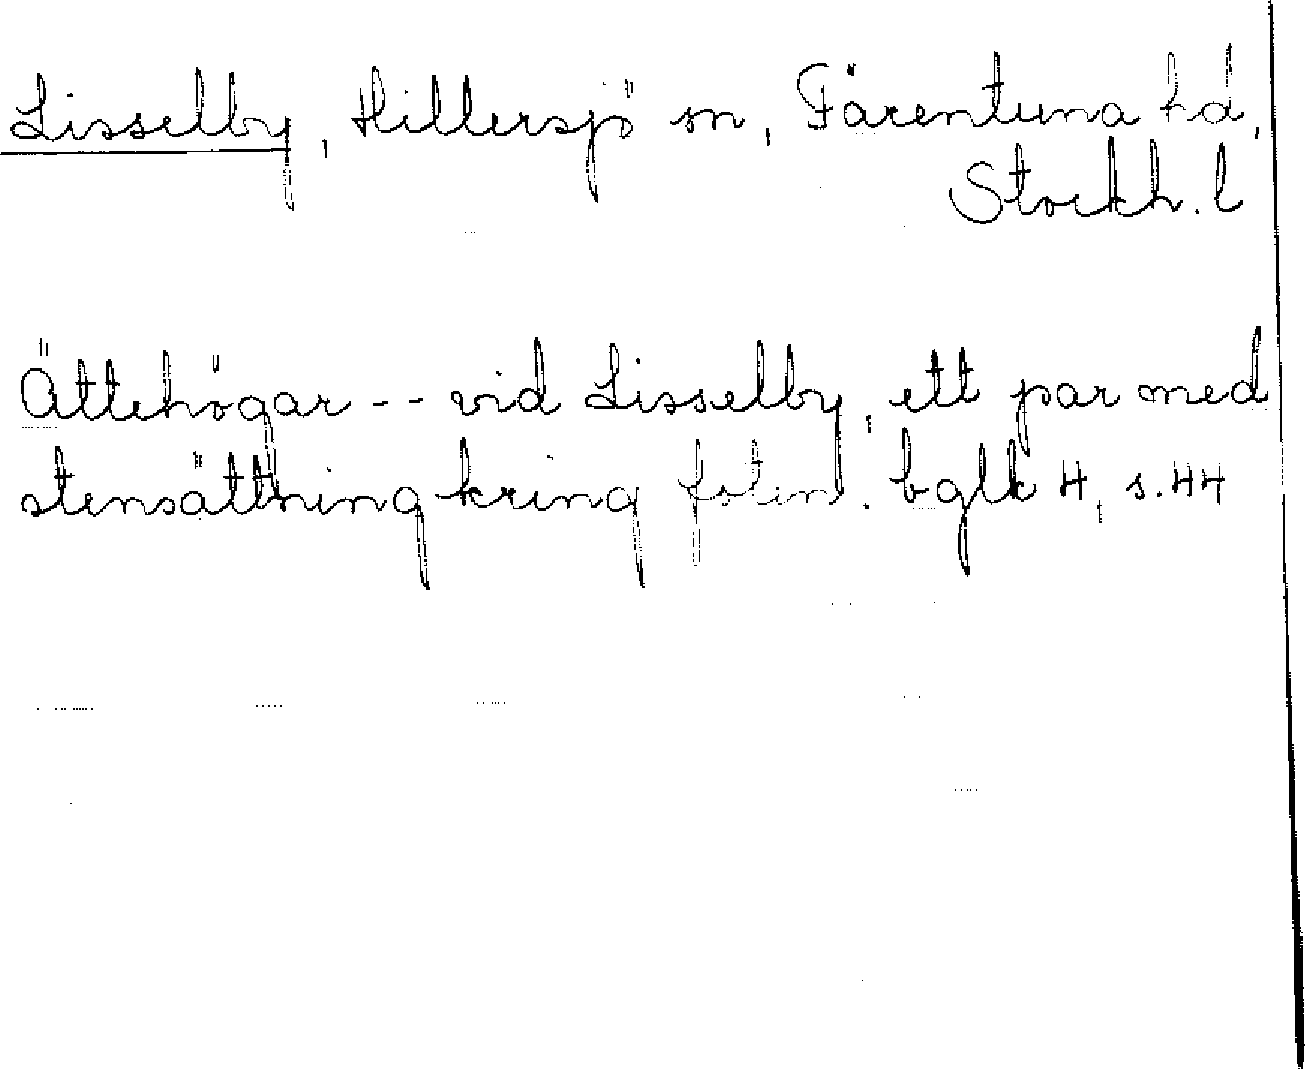 Lisselby, Hillersjö sn, Färentuna hd,
Stockh. l
Ättehögar -- vid Lisselby, ett par med
stensättning kring foten. bglk 4, s. 44